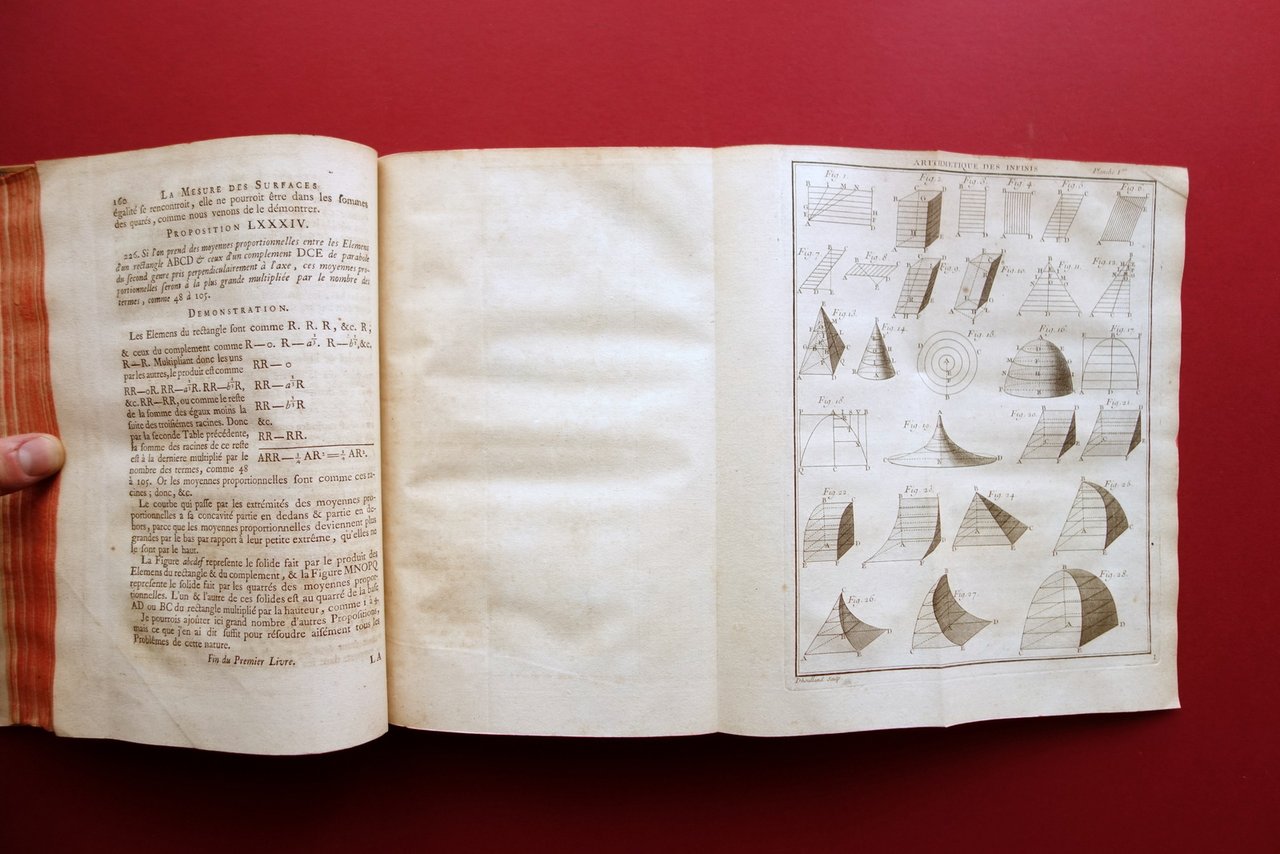 160 LA MESURE DES SURFACES
égalité se rencontroit, elle ne pourroit être dans les sommes
des quarés, comme nous venons de le démontrer.
PROPOSITION LXXXIV.
226. Si l'on prend des moyennes proportionnelles entre les Elemens
d'un rectangle ABCD & ceux d'un complement DCE de parabole
du second genre pris perpendiculairement à l'axe, ces moyennes pro-
portionnelles seront à la plus grande multipliée par le nombre des
termes, comme 48 à 105.
DEMONSTRATION.
Les Elemens du rectangle sont comme R. R. R, &c. R;
& ceux du complement comme R—0. R—a R—b &c,
R—R. Multipliant donc les uns
par les autres, le produit est comme
RR—0R. RR—a R. RR—b R,
&c. RR—RR, ou comme le reste
de la somme des égaux moins la
suite des troisièmes racines. Donc
par la seconde Table précédente,
la somme des racines de ce reste
est à la derniere multiplié par le
nombre des termes, comme 48
RR—0
RR—a R
RR—b R
&c.
RR—RR.
ARR— AR² = AR².
à 105. Or les moyennes proportionnelles sont comme ces ra-
cines; donc, &c.
Le courbe qui passe par les extrémités des moyennes pro-
portionnelles a sa concavité partie en dedans & partie en de-
hors, parce que les moyennes proportionnelles deviennent plus
grandes par le bas par rapport à leur petite extrême, qu'elles ne
le sont par le haut.
La Figure abcdef represente le solide fait par le produit des
Elemens du rectangle & du complement, & la Figure MNOPQ
represente le solide fait par les quarrés des moyennes propor-
tionnelles. L'un & l'autre de ces solides est au quarré de la base
AD ou BC du rectangle multiplié par la hauteur, comme 1 à 4.
Je pourrois ajoûter ici grand nombre d'autres Propositions,
mais ce que j'en ai dit suffit pour résoudre aisément tous les
Problêmes de cette nature.
Fin du Premier Livre.
LA
ARITHMETIQUE DES INFINIS
Planche I.re
Fig. 1 Fig. 2 Fig. 3 Fig. 4 Fig. 5 Fig. 6
Fig. 7 Fig. 8 Fig. 9 Fig. 10 Fig. 11 Fig. 12
Fig. 13 Fig. 14 Fig. 15 Fig. 16 Fig. 17
Fig. 18 Fig. 19 Fig. 20 Fig. 21
Fig. 22 Fig. 23 Fig. 24 Fig. 25
Fig. 26 Fig. 27 Fig. 28
Dheulland Sculp